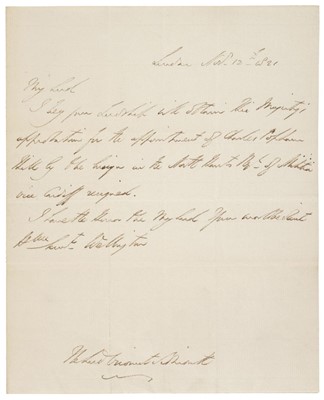 London Nov. 12th 1821
My Lord
I beg your Lordship will obtain His Majesty's
approbation for the appointment of Charles
to be Ensign in the North Hants Rt. of Militia
vice resigned.
I have the Honor to be My Lord Your most obedient
Humble Servt. Wellington
The Lord Viscount Sidmouth